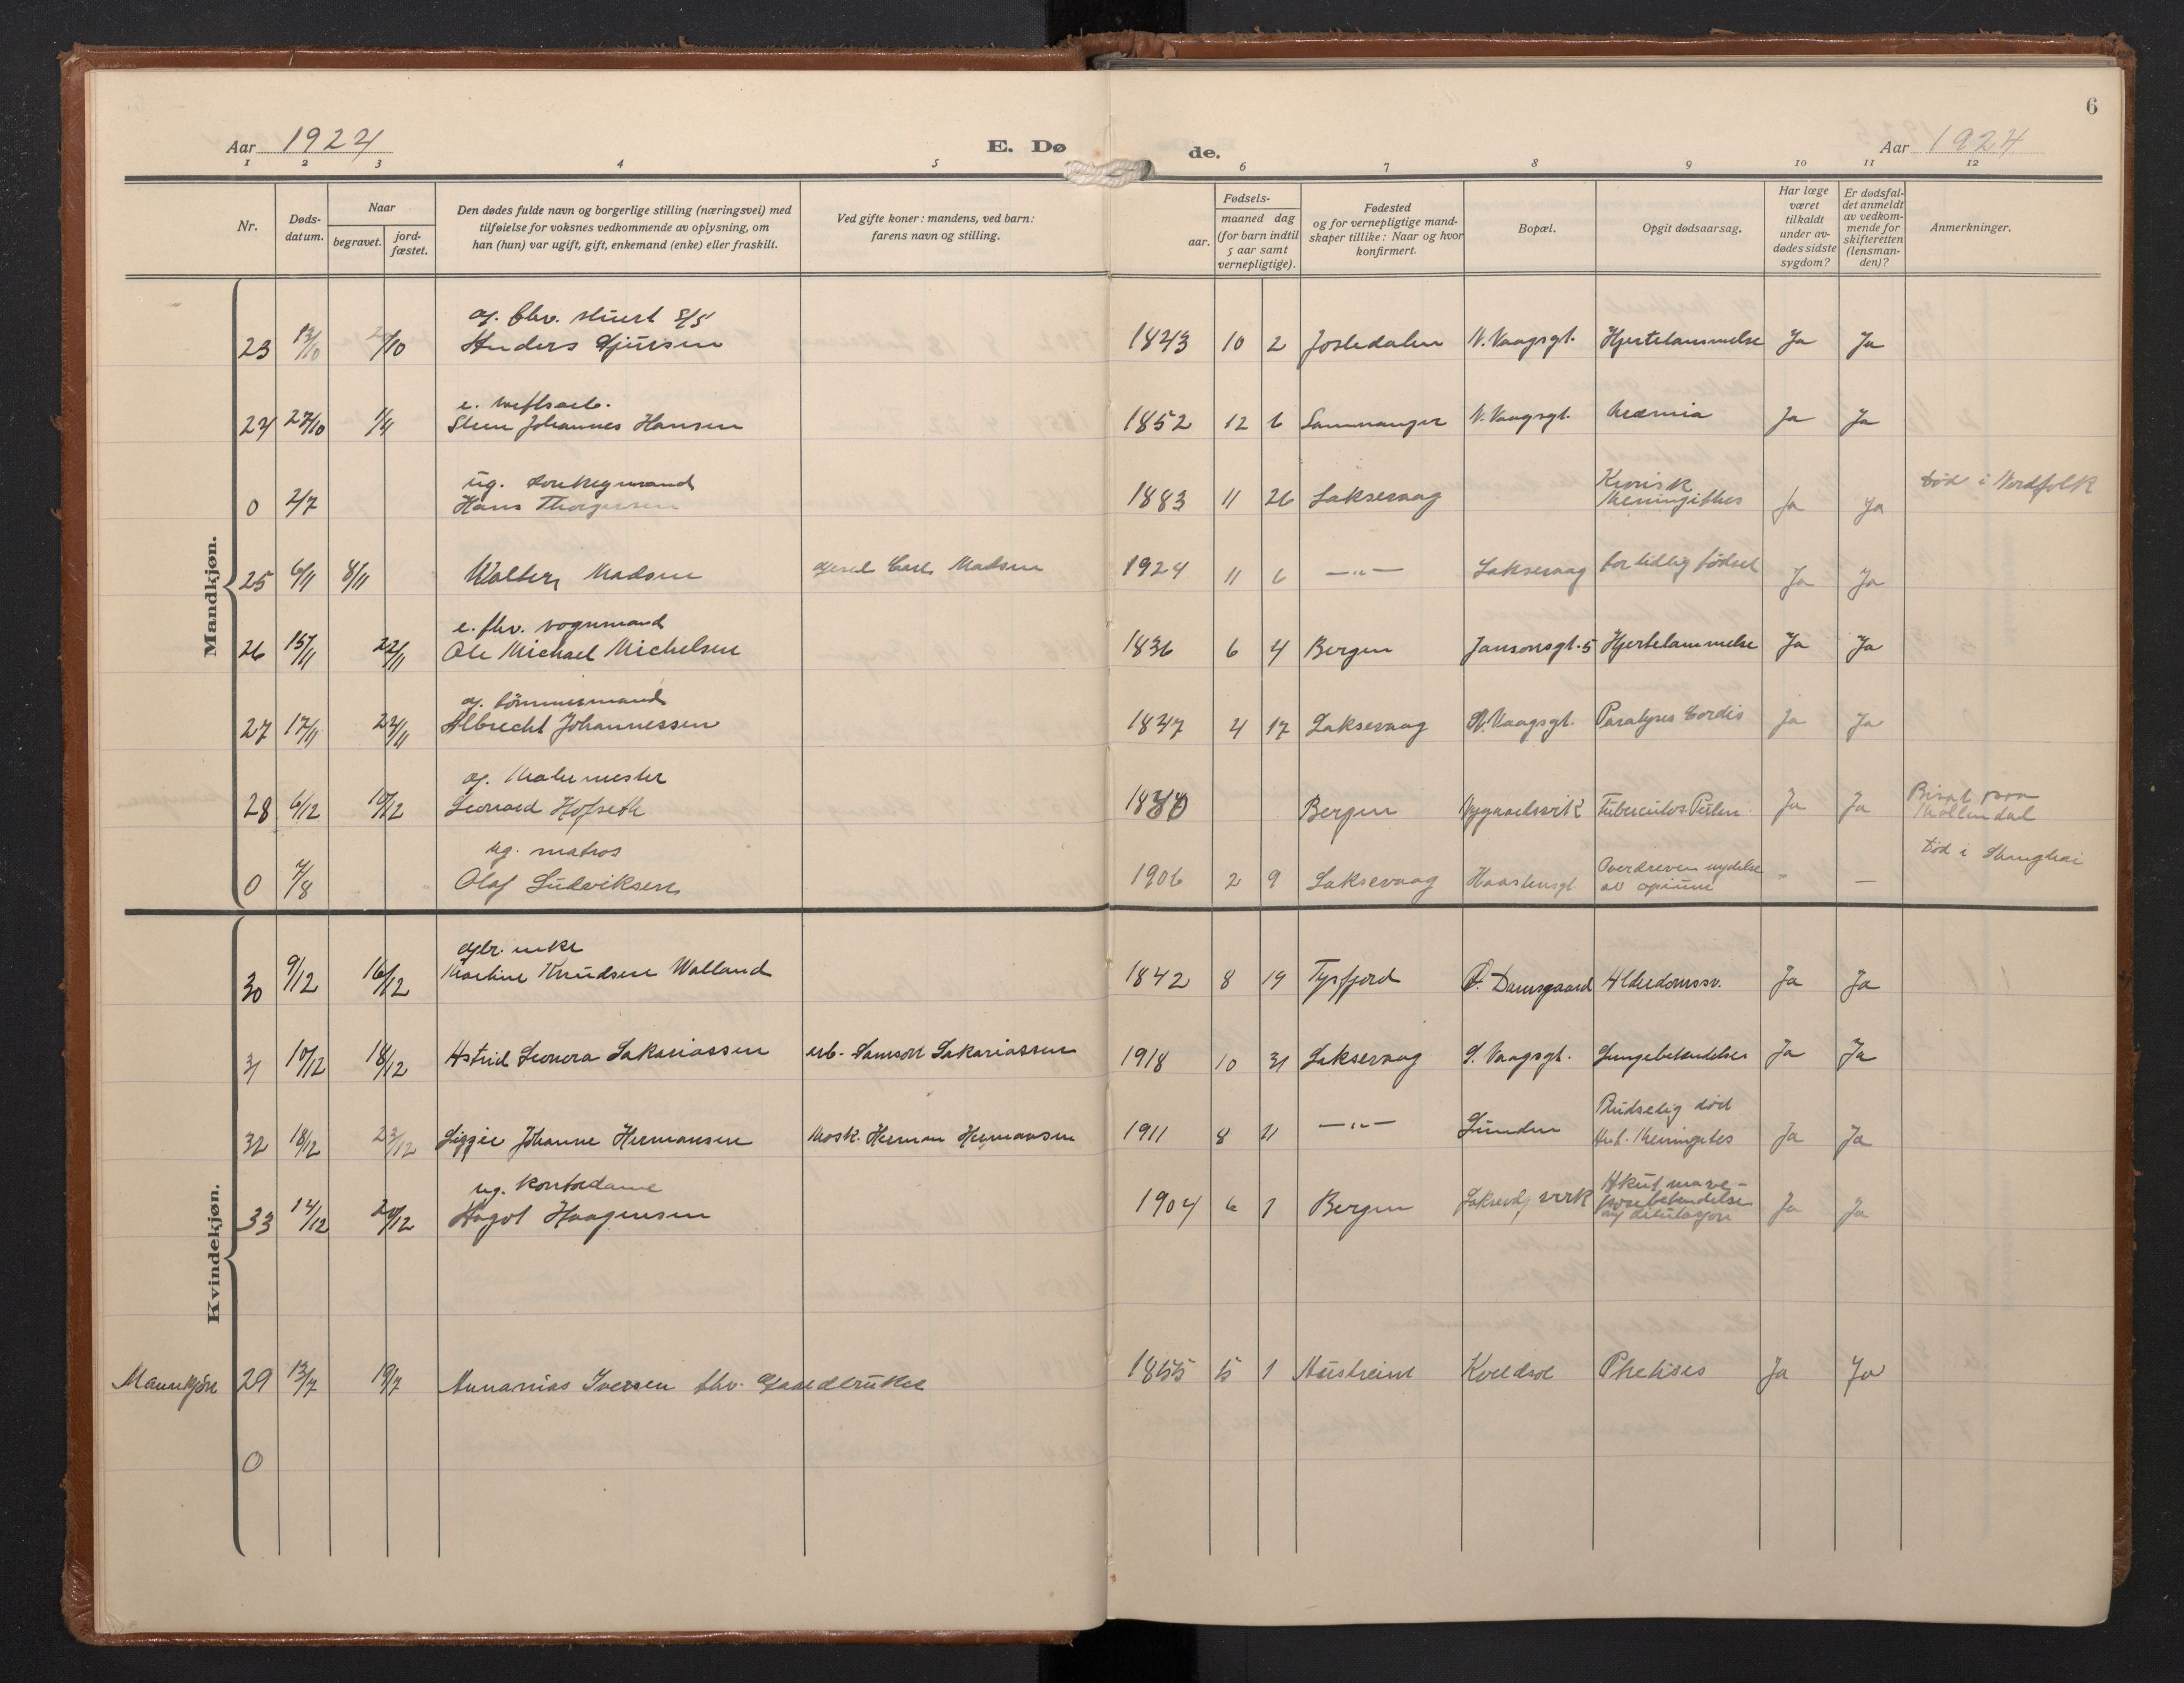 6
Aar 1924
E. Dø
de.
Aar 1924
1 2 3 4 5 6 7 8 9 10 11 12
Nr.
Døds-
datum.
Naar
begravet.
jord-
fæstet.
Den dødes fulde navn og borgerlige stilling (næringsvei) med
tilføielse for voksnes vedkommende av oplysning, om
han (hun) var ugift, gift, enkemand (enke) eller fraskilt.
Ved gifte koner: mandens, ved barn:
farens navn og stilling.
Fødsels-
aar.
maaned dag
(for barn indtil
5 aar samt
vernepligtige).
Fødested
og for vernepligtige mand-
skaper tillike: Naar og hvor
konfirmert.
Bopæl.
Opgit dødsaarsag.
Har læge
været
tilkaldt
under av-
dødes sidste
sygdom?
Er dødsfal-
det anmeldt
av vedkom-
mende for
skifteretten
(lensman-
den)?
Anmerkninger.
Mandkjøn.
g. fhv. stuert S/S
23 13/10 /10 Anders 1843 10 2 Jostedalen N. Vaagsgt. Hjertelammelse Ja Ja
e. verftsarb.
24 27/10 Johannes Hansen 1852 12 6 Samnanger N. Vaagsgt. Uræmia Ja Ja
ug.
0 2/7 Hans Thorgersen 1883 11 26 Laksevaag Kronisk Meningithes Ja Ja død i Nordfolk
25 6/11 8/11 Walter Madsen Carl Madsen 1924 11 6 —"— Laksevaag for tidlig fødsel Ja Ja
e. fhv. vognmand
26 15/11 22/11 Ole Michael Michelsen 1836 6 4 Bergen Jansonsgt. 5 Hjertelammelse Ja Ja
g. tømmermand
27 17/11 Albrecht Johannessen 1847 4 17 Laksevaag N. Vaagsgt. Paralyses Cordis Ja Ja
g. Malermester
28 6/12 10/12 Leonard Hofseth Bergen Nygaardsvik Tuberculos. Pulm. Ja Ja Bisat paa
Møllendal
ug. matros
0 /8 Olaf Ludviksen 1906 2 9 Laksevaag Overdreven nydelse
av opium — død i Shanghai
Kvindekjøn.
enke
30 9/12 16/12 Martine Knudsen Walland 1842 8 19 Tysfjord Ø. Damsgaard Alderdomssv. Ja Ja
31 10/12 18/12 Astrid Leonora Sakariassen arb. Samson Sakariassen 1918 10 31 Laksevaag S. Vaagsgt. Lungebetendelse Ja Ja
32 18/12 23/12 Johanne Hermansen Mask. Herman Hermansen 1911 8 —"— Lunden Pludselig død
Meningites Ja Ja
ug. kontordame
33 14/12 20/12 Aagot Haagensen 1904 6 1 Bergen Akut mave-
betendelse
Ja Ja
Mannkjøn 29 13/7 19/7 Annanias Iversen fhv. Gaardbruker 1855 5 1 Austreim Kveldsol Phthises Ja Ja
0